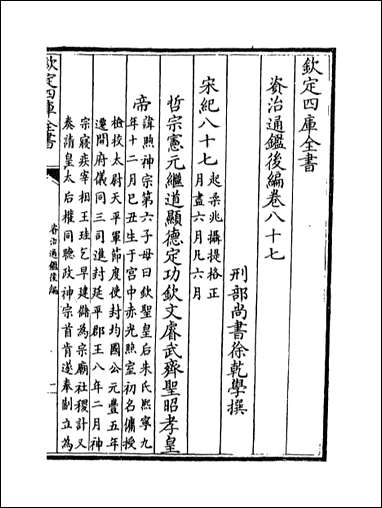 欽定四庫全書
資治通鑑後編卷八十七
刑部尚書徐乾學撰
宋紀八十七
起柔兆攝提格正
月盡六月凡六月
哲宗憲元繼道顯德定功欽文睿武齊聖昭孝皇
帝
諱煦神宗第六子母曰欽聖皇后朱氏熙寧九
年十二月己丑生于宫中赤光照室初名傭授
檢校太尉天平軍節度使封均國公元豐五年
遷開府儀同三司進封延平郡王八年二月神
宗寢疾宰相王珪乞早建儲為宗廟社稷計又
奏請皇太后權同聽政神宗首肯遂奉制立為
欽定四庫全書
資治通鑑後編
一